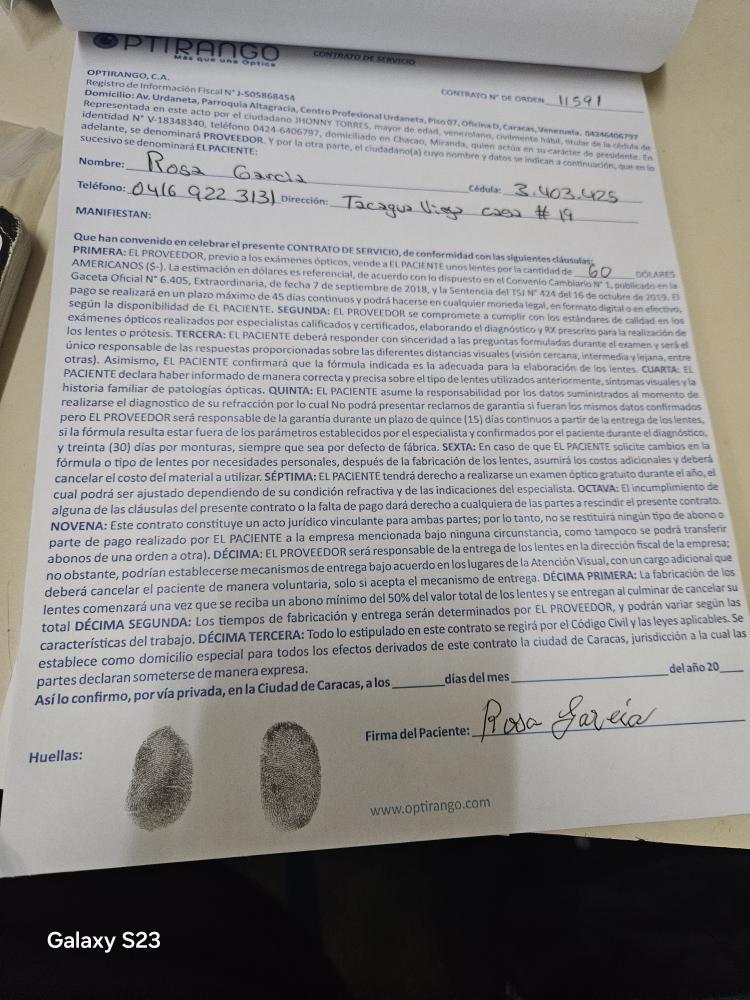 OPTIRANGO
Más que una Óptica
CONTRATO DE SERVICIO
OPTIRANGO, C.A.
Registro de Información Fiscal N° J-505868454
CONTRATO N° DE ORDEN 11591
Domicilio: Av. Urdaneta, Parroquia Altagracia, Centro Profesional Urdaneta, Piso 07, Oficina D, Caracas, Venezuela. 04246406797
Representada en este acto por el ciudadano JHONNY TORRES, mayor de edad, venezolano, civilmente hábil, titular de la cédula de
identidad N° V-18348340, teléfono 0424-6406797, domiciliado en Chacao, Miranda, quien actúa en su carácter de presidente. En
adelante, se denominará PROVEEDOR. Y por la otra parte, el ciudadano(a) cuyo nombre y datos se indican a continuación, que en lo
sucesivo se denominará EL PACIENTE:
Nombre: Rosa Garcia
Cédula: 3.403.425
Teléfono: 0416 922 3131 Dirección: Tacagua Vieja casa # 19
MANIFIESTAN:
Que han convenido en celebrar el presente CONTRATO DE SERVICIO, de conformidad con las siguientes cláusulas:
PRIMERA: EL PROVEEDOR, previo a los exámenes ópticos, vende a EL PACIENTE unos lentes por la cantidad de 60 DÓLARES
AMERICANOS ($-). La estimación en dólares es referencial, de acuerdo con lo dispuesto en el Convenio Cambiario N° 1, publicado en la
Gaceta Oficial N° 6.405, Extraordinaria, de fecha 7 de septiembre de 2018, y la Sentencia del TSJ N° 424 del 16 de octubre de 2019. El
pago se realizará en un plazo máximo de 45 días continuos y podrá hacerse en cualquier moneda legal, en formato digital o en efectivo,
según la disponibilidad de EL PACIENTE. SEGUNDA: EL PROVEEDOR se compromete a cumplir con los estándares de calidad en los
exámenes ópticos realizados por especialistas calificados y certificados, elaborando el diagnóstico y RX prescrito para la realización de
los lentes o prótesis. TERCERA: EL PACIENTE deberá responder con sinceridad a las preguntas formuladas durante el examen y será el
único responsable de las respuestas proporcionadas sobre las diferentes distancias visuales (visión cercana, intermedia y lejana, entre
otras). Asimismo, EL PACIENTE confirmará que la fórmula indicada es la adecuada para la elaboración de los lentes. CUARTA: EL
PACIENTE declara haber informado de manera correcta y precisa sobre el tipo de lentes utilizados anteriormente, síntomas visuales y la
historia familiar de patologías ópticas. QUINTA: EL PACIENTE asume la responsabilidad por los datos suministrados al momento de
realizarse el diagnostico de su refracción por lo cual No podrá presentar reclamos de garantía si fueran los mismos datos confirmados
pero EL PROVEEDOR será responsable de la garantía durante un plazo de quince (15) días continuos a partir de la entrega de los lentes,
si la fórmula resulta estar fuera de los parámetros establecidos por el especialista y confirmados por el paciente durante el diagnóstico,
y treinta (30) días por monturas, siempre que sea por defecto de fábrica. SEXTA: En caso de que EL PACIENTE solicite cambios en la
fórmula o tipo de lentes por necesidades personales, después de la fabricación de los lentes, asumirá los costos adicionales y deberá
cancelar el costo del material a utilizar. SÉPTIMA: EL PACIENTE tendrá derecho a realizarse un examen óptico gratuito durante el año, el
cual podrá ser ajustado dependiendo de su condición refractiva y de las indicaciones del especialista. OCTAVA: El incumplimiento de
alguna de las cláusulas del presente contrato o la falta de pago dará derecho a cualquiera de las partes a rescindir el presente contrato.
NOVENA: Este contrato constituye un acto jurídico vinculante para ambas partes; por lo tanto, no se restituirá ningún tipo de abono o
parte de pago realizado por EL PACIENTE a la empresa mencionada bajo ninguna circunstancia, como tampoco se podrá transferir
abonos de una orden a otra). DÉCIMA: EL PROVEEDOR será responsable de la entrega de los lentes en la dirección fiscal de la empresa;
no obstante, podrían establecerse mecanismos de entrega bajo acuerdo en los lugares de la Atención Visual, con un cargo adicional que
deberá cancelar el paciente de manera voluntaria, solo si acepta el mecanismo de entrega. DÉCIMA PRIMERA: La fabricación de los
lentes comenzará una vez que se reciba un abono mínimo del 50% del valor total de los lentes y se entregan al culminar de cancelar su
total DÉCIMA SEGUNDA: Los tiempos de fabricación y entrega serán determinados por EL PROVEEDOR, y podrán variar según las
características del trabajo. DÉCIMA TERCERA: Todo lo estipulado en este contrato se regirá por el Código Civil y las leyes aplicables. Se
establece como domicilio especial para todos los efectos derivados de este contrato la ciudad de Caracas, jurisdicción a la cual las
partes declaran someterse de manera expresa.
Así lo confirmo, por vía privada, en la Ciudad de Caracas, a los ______ días del mes ______ del año 20___
Firma del Paciente: Rosa García
Huellas:
www.optirango.com
Galaxy S23